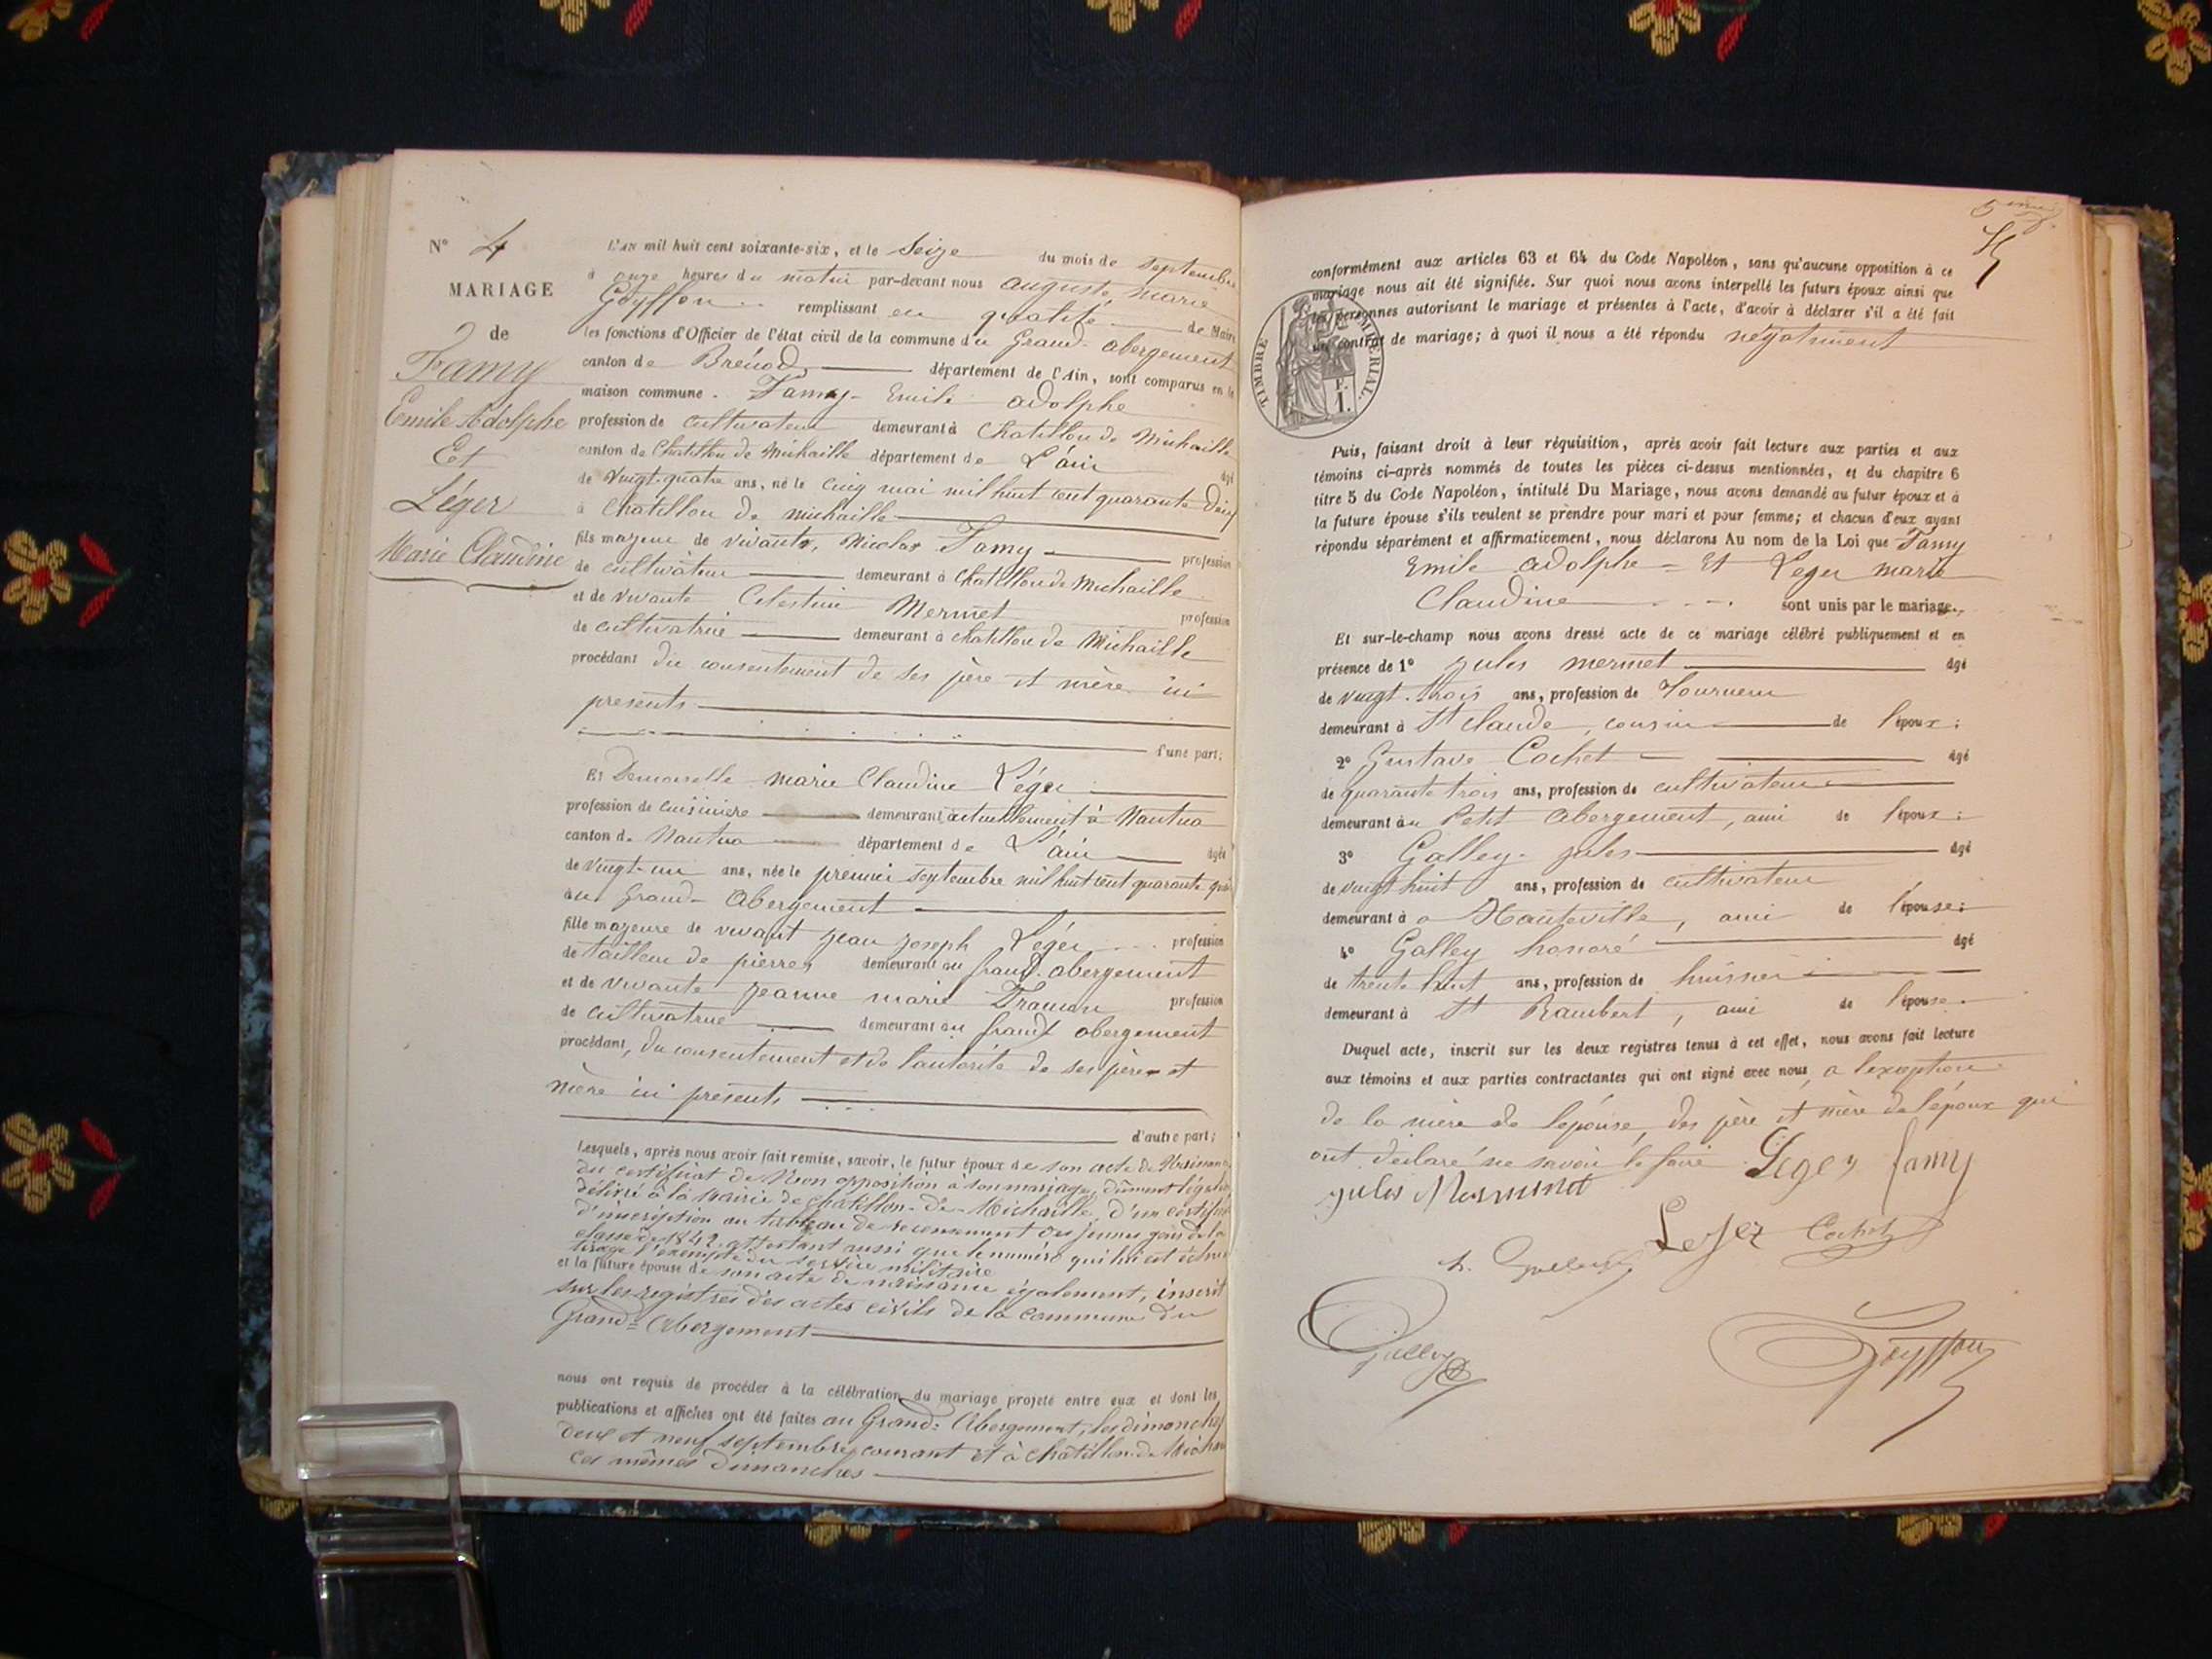 N° 4
MARIAGE
de
Famy
Emile Adolphe
Et
Léger
Marie Claudine
L'AN mil huit cent soixante-six, et le Seize du mois de septembre
à onze heures du matin par-devant nous auguste marie
Goyffon remplissant en qualité de Maire
les fonctions d'Officier de l'état civil de la commune du Grand-abergement
canton de Brénod département de l'Ain, sont comparus en la
maison commune. Famy Emile adolphe
profession de cultivateur demeurant à Chatillon de Michaille
canton de Chatillon de Michaille département de L'ain âgé
de vingt-quatre ans, né le cinq mai mil huit cent quarante deux
à Chatillon de michaille
fils majeur de vivants, Nicolas Famy profession
de cultivateur demeurant à Chatillon de Michaille
et de vivante Celestine Mermet profession
de cultivatrice demeurant à chatillon de Michaille
procédant du consentement de ses père et mère ici
presents
d'une part;
Et Demoiselle marie Claudine Léger
profession de cuisiniere demeurant actuellement à Nantua
canton de Nantua département de L'ain âgée
de vingt-un ans, née le premier septembre mil huit cent quarante
au Grand-Abergement
fille majeure de vivant jean joseph Léger profession
de tailleur de pierres demeurant au grand abergement
et de vivante jeanne marie profession
de cultivatrice demeurant au grand abergement
procédant, du consentement et de l'autorité de ses père et
mère ici présents
d'autre part;
Lesquels, après nous avoir fait remise, savoir, le futur époux de son acte de Naissance
du certificat de Non opposition à son mariage, dûment légalisé
délivré à la Mairie de Chatillon-de-Michaille, d'un certificat
d'inscription au tableau de recensement des jeunes gens de la
classe de 1842 attestant aussi que le numéro qui lui est échu
tirage l'exempte du service militaire
et la future épouse de son acte de naissance également, inscrit
sur les registres des actes civils de la commune du
Grand=Abergement
nous ont requis de procéder à la célébration du mariage projeté entre eux et dont les
publications et affiches ont été faites au Grand=Abergement, les dimanches
deux et neuf septembre courant et à Châtillon-de-Michaille
ces mêmes dimanches
conformément aux articles 63 et 64 du Code Napoléon, sans qu'aucune opposition à ce
mariage nous ait été signifiée. Sur quoi nous avons interpellé les futurs époux ainsi que
les personnes autorisant le mariage et présentes à l'acte, d'avoir à déclarer s'il a été fait
un contrat de mariage; à quoi il nous a été répondu négativement
TIMBRE IMPÉRIAL
Puis, faisant droit à leur réquisition, après avoir fait lecture aux parties et aux
témoins ci-après nommés de toutes les pièces ci-dessus mentionnées, et du chapitre 6
titre 5 du Code Napoléon, intitulé Du Mariage, nous avons demandé au futur époux et à
la future épouse s'ils veulent se prendre pour mari et pour femme; et chacun d'eux ayant
répondu séparément et affirmativement, nous déclarons Au nom de la Loi que Famy
Emile adolphe = Et Leger marie
Claudine sont unis par le mariage.
Et sur-le-champ nous avons dressé acte de ce mariage célébré publiquement et en
présence de 1° jules mermet âgé
de vingt-trois ans, profession de Tourneur
demeurant à St Claude, cousin de l'époux;
2° Gustave Cochet âgé
de quarante trois ans, profession de cultivateur
demeurant au Petit Abergement, ami de l'époux;
3° Galley jules âgé
de vingt huit ans, profession de cultivateur
demeurant à a Hauteville, ami de l'épouse;
4° Galley honoré âgé
de trente huit ans, profession de huissier
demeurant à St Rambert, ami de l'épouse.
Duquel acte, inscrit sur les deux registres tenus à cet effet, nous avons fait lecture
aux témoins et aux parties contractantes qui ont signé avec nous, a l'exception
de la mère de l'épouse, des père et mère de l'époux qui
ont déclaré ne savoir le faire. Leger famy
jules Mermet
Leger Cochet
h. Galley
Galley
Goyffon